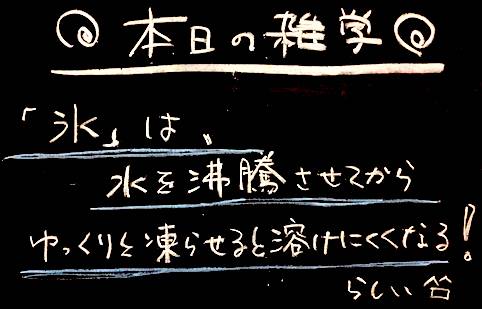 本日の雑学
「氷」は、
水を沸騰させてから
ゆっくりと凍らせると溶けにくくなる!
らしい笑